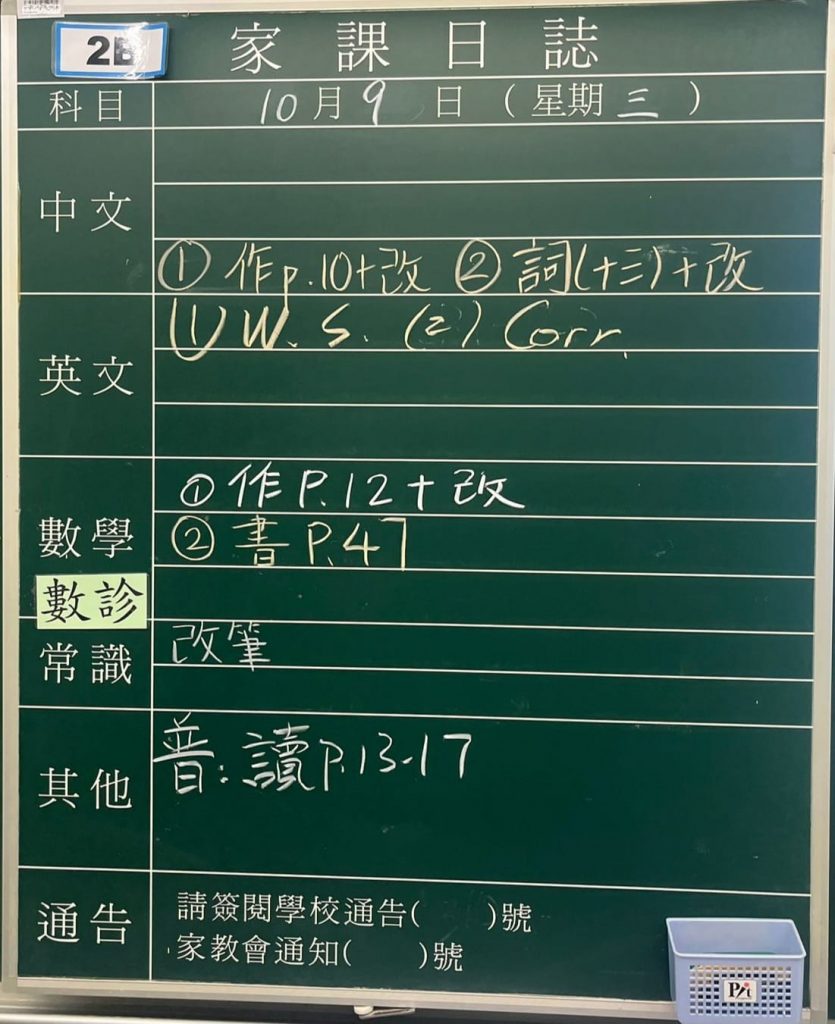 2B
家課日誌
科目 10月9日（星期三）
中文
① 作p.10+改 ② 詞(十三)+改
英文
(1) W. S. (2) Corr.
數學
① 作 P.12 + 改
② 書 P.47
數診
常識
改筆
其他
普：讀P.13-17
通告
請簽閱學校通告( )號
家教會通知( )號